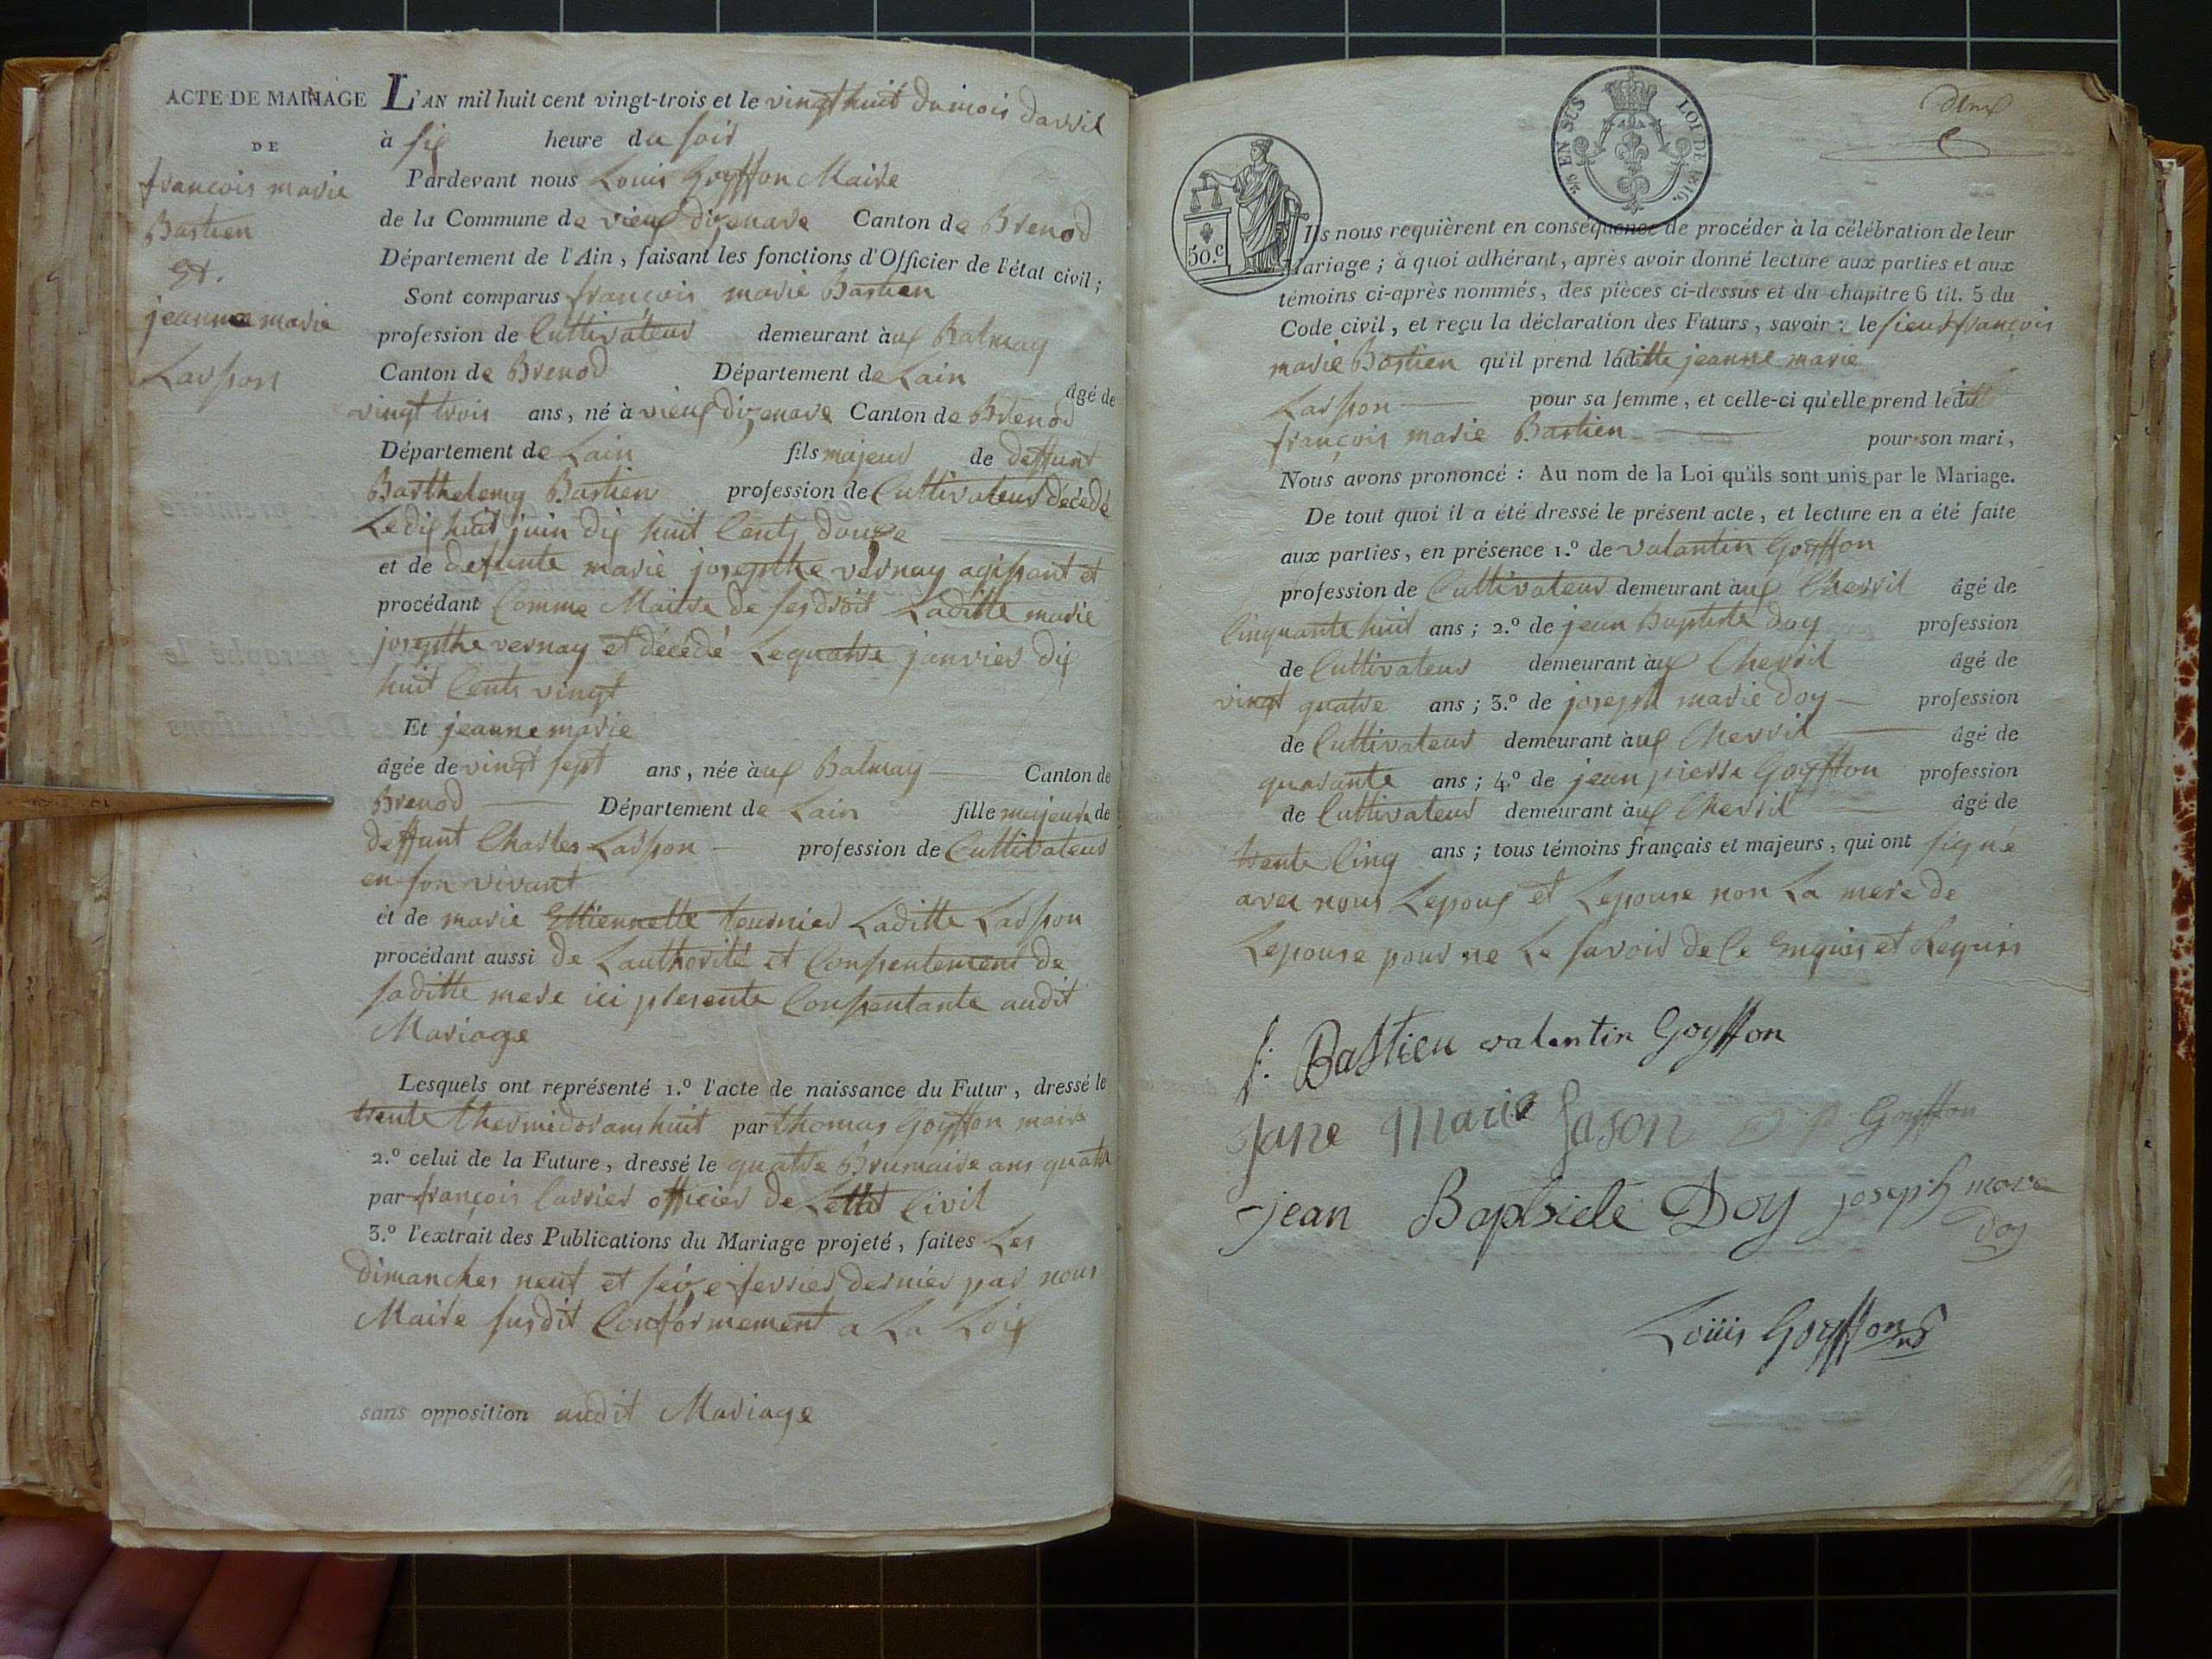 ACTE DE MARIAGE
DE
françois marie
Bastien
Et.
jeanne marie
Larsson
L'AN mil huit cent vingt-trois et le vingt huit du mois davril
à six heure du soir
Pardevant nous Louis Goyffon Maire
de la Commune de vieux dizenave Canton de Brenod
Département de l'Ain, faisant les fonctions d'Officier de l'état civil;
Sont comparus françois marie Bastien
profession de Cultivateur demeurant àux Balmay
Canton de Brenod Département de Lain âgé de
vingt trois ans, né à vieux dizenave Canton de Brenod
Département de Lain fils majeur de deffunt
Barthelemy Bastien profession de Cultivateur décédé
Le dix huit juin dix huit Cents douze
et de defunte marie josepthe vernay agissant et
procédant Comme Maitre de ses droit Laditte marie
josepthe vernay et décédé Le quatre janvier dix
huit Cents vingt
Et jeanne marie
âgée de vingt sept ans, née àux Balmay Canton de
Brenod Département de Lain fille majeure de
deffunt Charles Larsson profession de Cultivateur
en son vivant
et de marie Ettiennette tournier Laditte Larsson
procédant aussi de Lauthorité et Consentement de
saditte mere ici presente Consentante audit
Mariage
Lesquels ont représenté 1.º l'acte de naissance du Futur, dressé le
trente thermidor ans huit par thomas Goyffon maire
2.º celui de la Future, dressé le quatre Brumaire ans quatre
par françois Carrier officier de Lettit Civil
3.º l'extrait des Publications du Mariage projeté, faites Les
dimanches neuf et seize fevrier dernier par nous
Maire susdit Conformement a La Loix
sans opposition audit Mariage
deux
EN SUS LOI DE 1816.
50.C
Ils nous requièrent en conséquence de procéder à la célébration de leur
Mariage; à quoi adhérant, après avoir donné lecture aux parties et aux
témoins ci-après nommés, des pièces ci-dessus et du chapitre 6 tit. 5 du
Code civil, et reçu la déclaration des Futurs, savoir: le sieur françois
marie Bastien qu'il prend laditte jeanne marie
Larsson pour sa femme, et celle-ci qu'elle prend ledit
françois marie Bastien pour son mari,
Nous avons prononcé: Au nom de la Loi qu'ils sont unis par le Mariage.
De tout quoi il a été dressé le présent acte, et lecture en a été faite
aux parties, en présence 1.º de valantin Goyffon
profession de Cultivateur demeurant àux Chevril âgé de
Cinquante huit ans; 2.º de jean Baptiste Doy profession
de Cultivateur demeurant àux Chevril âgé de
vingt quatre ans; 3.º de joseph marie Doy profession
de Cultivateur demeurant àux Chevril âgé de
quarante ans; 4.º de jean pierre Goyffon profession
de Cultivateur demeurant àux Chevril âgé de
trente Cinq ans; tous témoins français et majeurs, qui ont signé
avec nous Lepoux et Lepouse non La mere de
Lepouse pour ne Le savoir de Ce Enquis et Requis
f: Bastien valentin Goyffon
Jane Marie Jason J P Goyffon
jean Baptiste Doy joseph marie
Doy
Loüis Goyffon